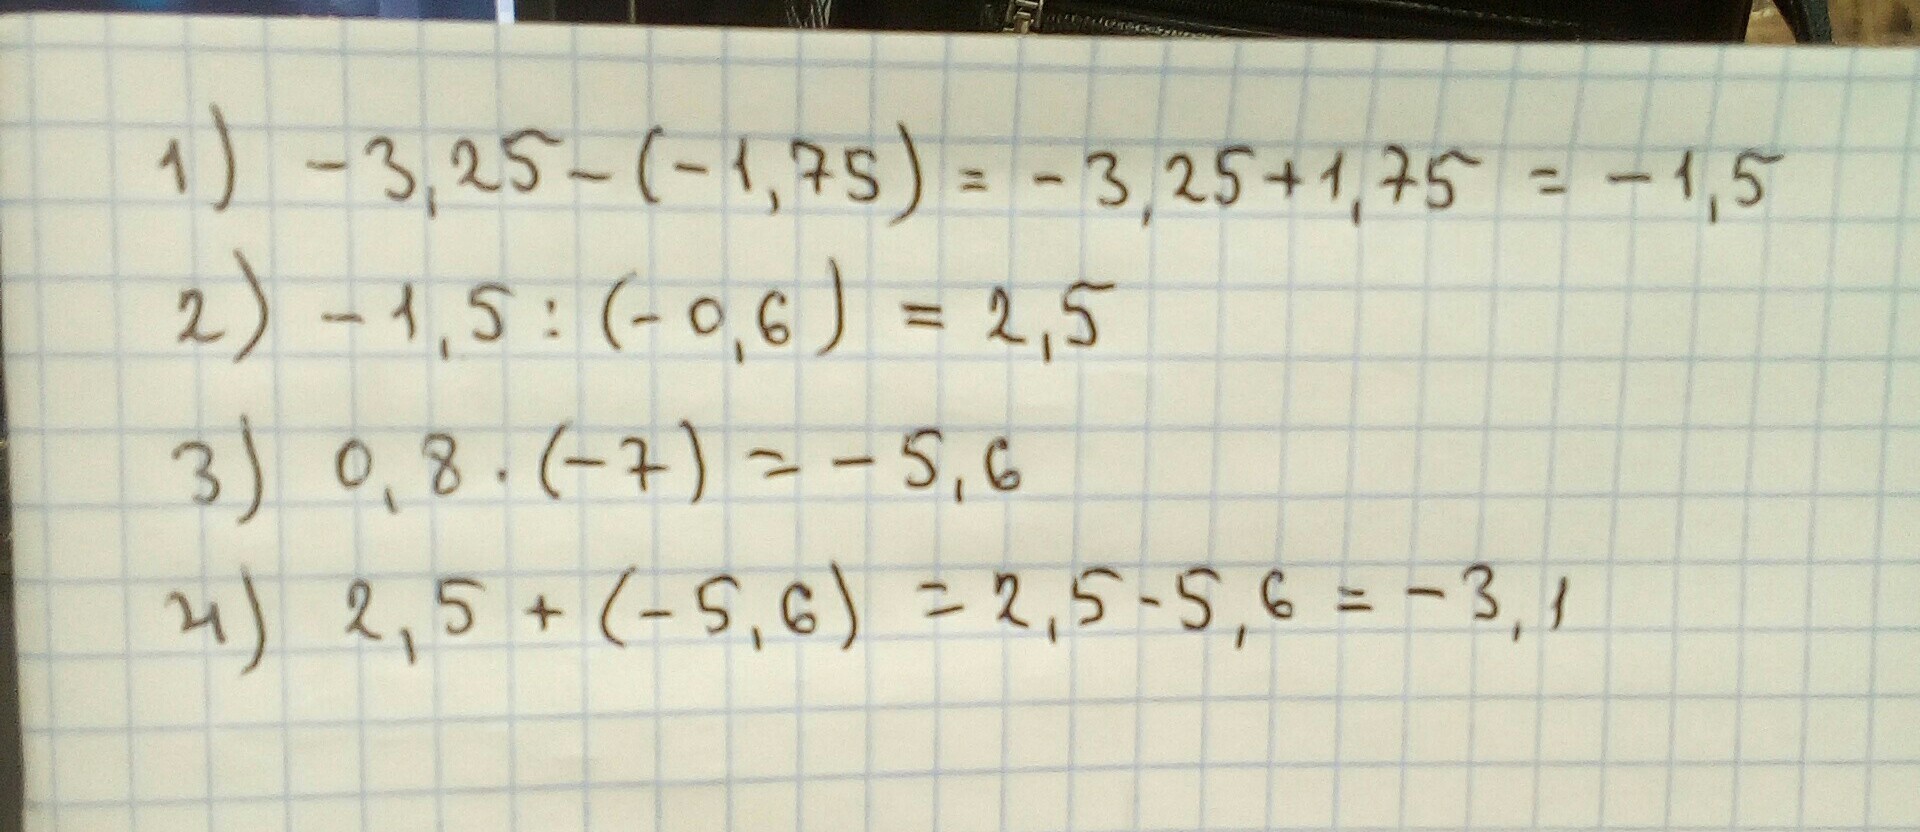 1) -3,25-(-1,75) = -3,25+1,75 = -1,5
2) -1,5 : (-0,6) = 2,5
3) 0,8 · (-7) = -5,6
4) 2,5 + (-5,6) = 2,5-5,6 = -3,1